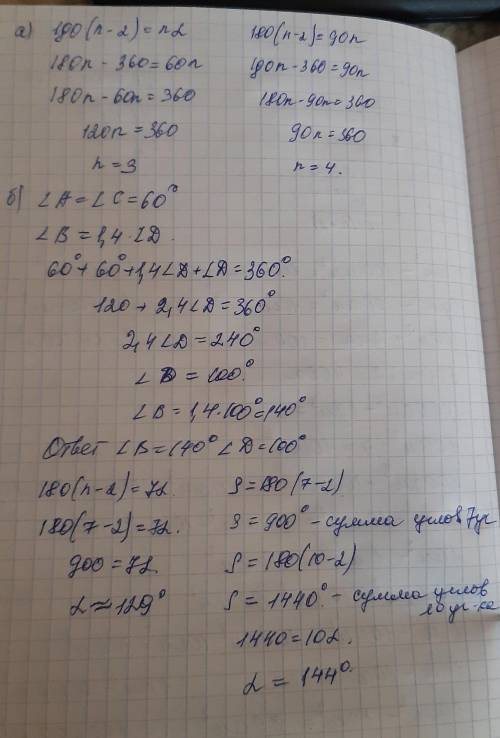 а) 180(n-2)=nL
180n-360=60n
180n-60n=360
120n=360
n=3
180(n-2)=90n
180n-360=90n
180n-90n=360
90n=360
n=4.
б) ∠A=∠C=60°
∠B=1,4·∠D.
60°+60°+1,4∠D+∠D=360°.
120+2,4∠D=360°
2,4∠D=240°
∠D=100°.
∠B=1,4·100°=140°
Ответ ∠B=140° ∠D=100°
180(n-2)=7L
180(7-2)=7L.
900=7L
L≈129°
S=180(7-2)
S=900° - сумма углов 7уг
S=180(10-2)
S=1440°. - сумма углов
10уг-ка
1440=10L.
L=144°.